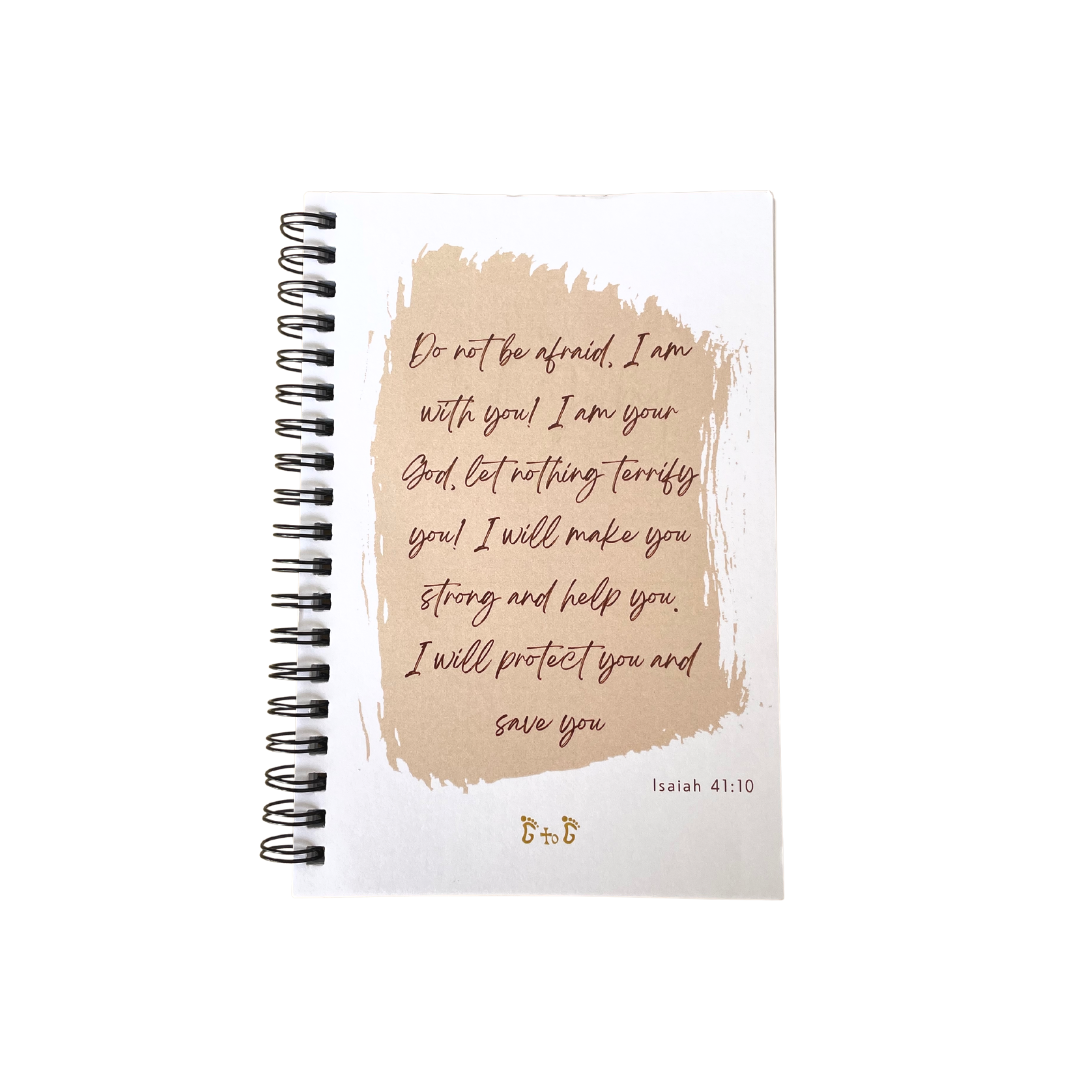 Do not be afraid, I am
with you! I am your
God, let nothing terrify
you! I will make you
strong and help you.
I will protect you and
save you
Isaiah 41:10
G to G